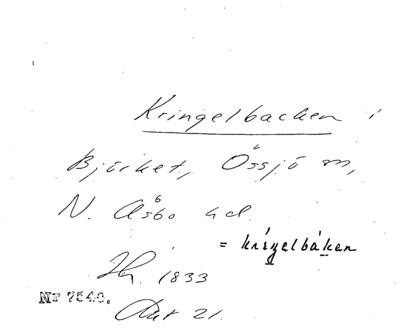 Kringelbacken i
Björket, Össjö sn,
N. Åsbo hd
= kriŋelbáken
1833
NT 7540.
21.